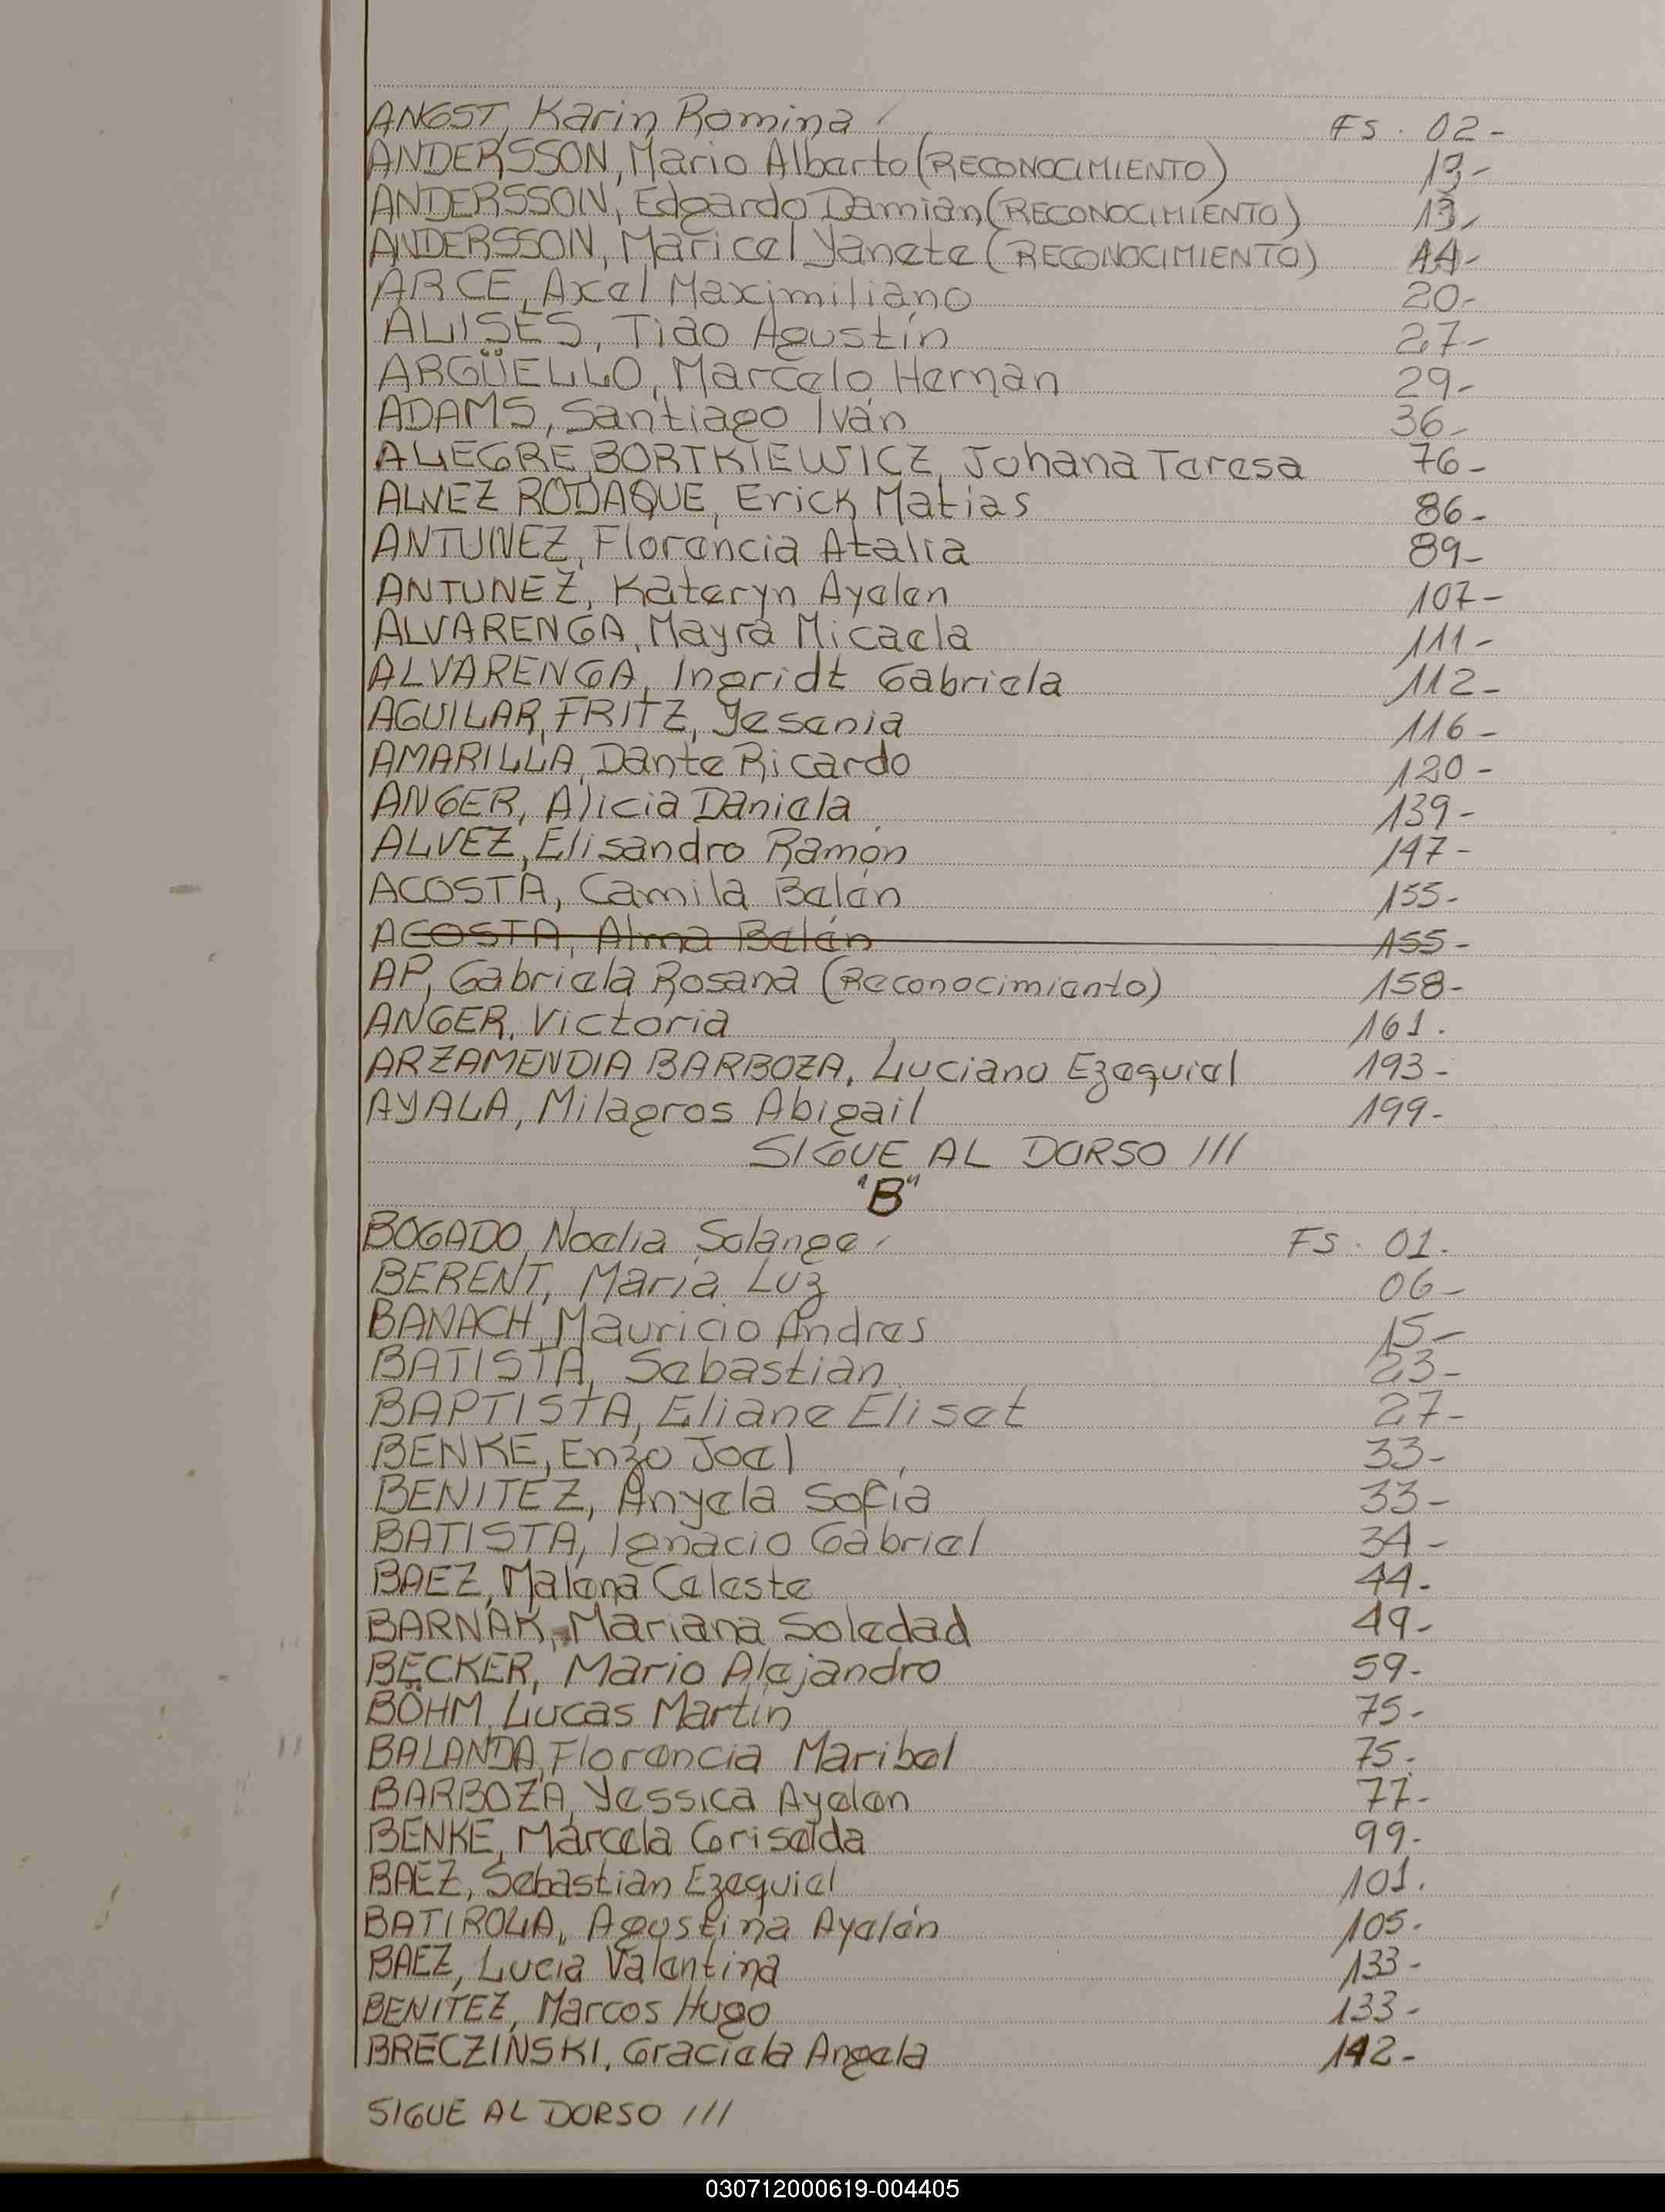 ANGST, Karin Romina FS. 02-
ANDERSSON, Mario Alberto (RECONOCIMIENTO) 13-
ANDERSSON, Edgardo Damian (RECONOCIMIENTO) 13-
ANDERSSON, Maricel Yanete (RECONOCIMIENTO) 14-
ARCE, Axel Maximiliano 20-
ALISES, Tiao Agustín 27-
ARGÜELLO, Marcelo Hernan 29-
ADAMS, Santiago Iván 36-
ALEGRE BORTKIEWICZ, Johana Teresa 76-
ALVEZ RODAQUE, Erick Matias 86-
ANTUNEZ, Florencia Atalia 89-
ANTUNEZ, Kateryn Ayelen 107-
ALVARENGA, Mayra Micaela 111-
ALVARENGA, Ingridt Gabriela 112-
AGUILAR FRITZ, Yesenia 116-
AMARILLA, Dante Ricardo 120-
ANGER, Alicia Daniela 139-
ALVEZ, Elisandro Ramón 147-
ACOSTA, Camila Belén 155-
ACOSTA, Alma Belén 155-
AP, Gabriela Rosana (Reconocimiento) 158-
ANGER, Victoria 161.
ARZAMENDIA BARBOZA, Luciano Ezequiel 193-
AYALA, Milagros Abigail 199-
SIGUE AL DORSO ///
"B"
BOGADO, Noelia Solange FS. 01.
BERENT, María Luz 06-
BANACH, Mauricio Andres 15-
BATISTA, Sebastian 23-
BAPTISTA, Eliane Eliset 27-
BENKE, Enzo Joel 33-
BENITEZ, Anyela Sofía 33-
BATISTA, Ignacio Gabriel 34-
BAEZ, Malena Celeste 44-
BARNAK, Mariana Soledad 49-
BECKER, Mario Alejandro 59-
BÖHM, Lucas Martín 75-
BALANDA, Florencia Maribel 75-
BARBOZA, Yessica Ayelen 77-
BENKE, Marcela Griselda 99-
BAEZ, Sebastian Ezequiel 101.
BATIROLA, Agustina Ayelén 105-
BAEZ, Lucia Valentina 133-
BENITEZ, Marcos Hugo 133-
BRECZINSKI, Graciela Angela 142-
SIGUE AL DORSO ///
030712000619-004405